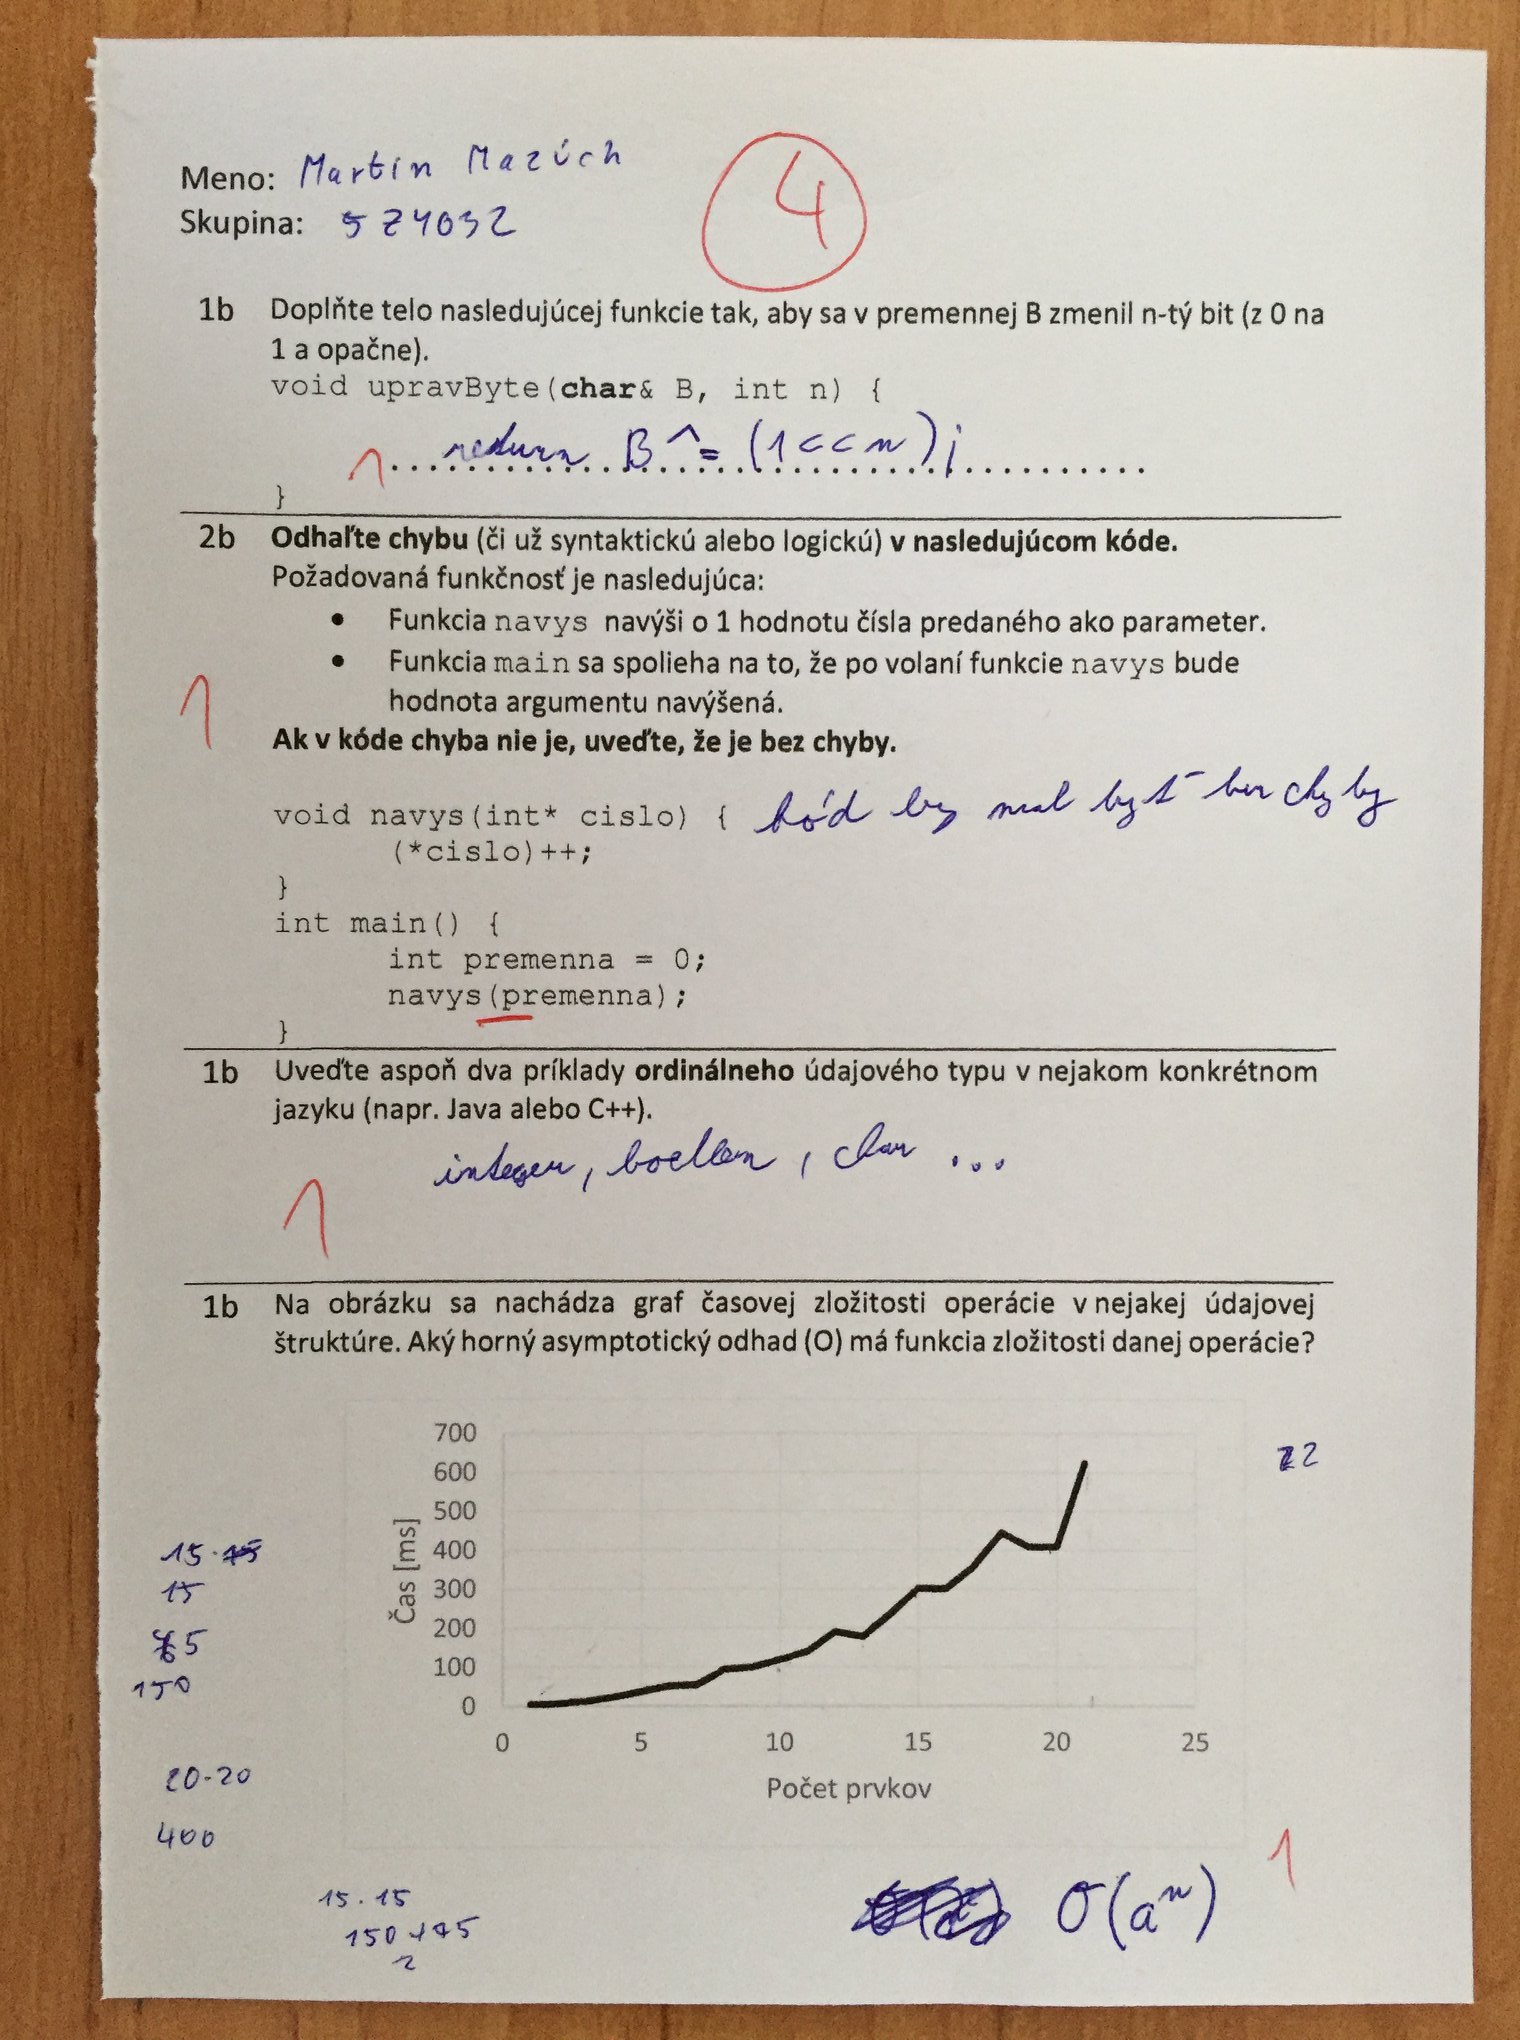 Meno: Martin Mazúch
4
Skupina: 5ZY032
1b Doplňte telo nasledujúcej funkcie tak, aby sa v premennej B zmenil n-tý bit (z 0 na
1 a opačne).
void upravByte(char& B, int n) {
1 return B ^= (1<<n);
}
2b Odhaľte chybu (či už syntaktickú alebo logickú) v nasledujúcom kóde.
Požadovaná funkčnosť je nasledujúca:
• Funkcia navys navýši o 1 hodnotu čísla predaného ako parameter.
• Funkcia main sa spolieha na to, že po volaní funkcie navys bude
hodnota argumentu navýšená.
1
Ak v kóde chyba nie je, uveďte, že je bez chyby.
void navys(int* cislo) { kód by mal byť bez chyby
(*cislo)++;
}
int main() {
int premenna = 0;
navys(premenna);
}
1b Uveďte aspoň dva príklady ordinálneho údajového typu v nejakom konkrétnom
jazyku (napr. Java alebo C++).
integer, boellen, char ...
1
1b Na obrázku sa nachádza graf časovej zložitosti operácie v nejakej údajovej
štruktúre. Aký horný asymptotický odhad (O) má funkcia zložitosti danej operácie?
700
600
500
400
300
200
100
0
Čas [ms]
0 5 10 15 20 25
Počet prvkov
15.
15
5
150
20.20
400
15.15
150+75
2
1
O(aⁿ)